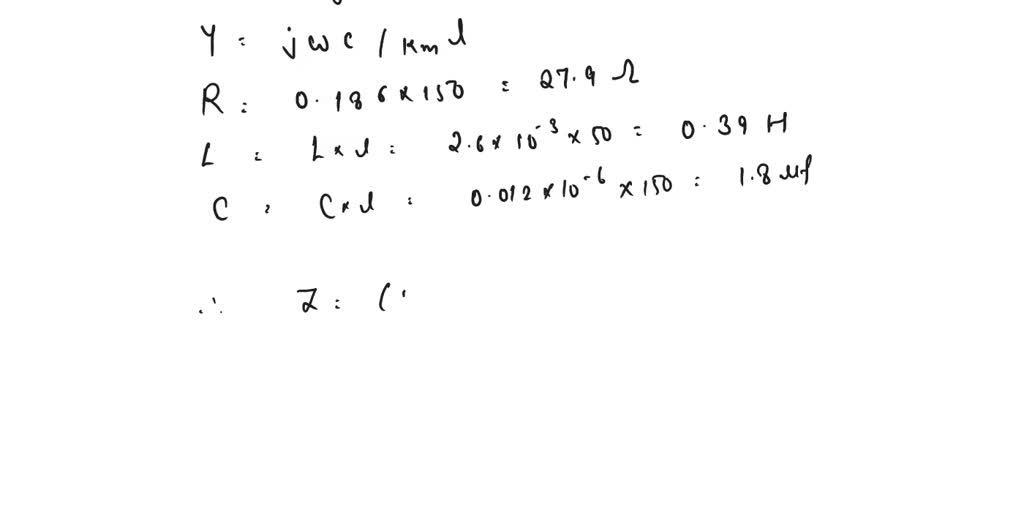 Y = jwc / km l
R = 0.186 x 150 = 27.9 Ω
L = L x l = 2.6 x 10⁻³ x 50 = 0.39 H
C = C x l = 0.012 x 10⁻⁶ x 150 = 1.8 μf
∴ Z = (